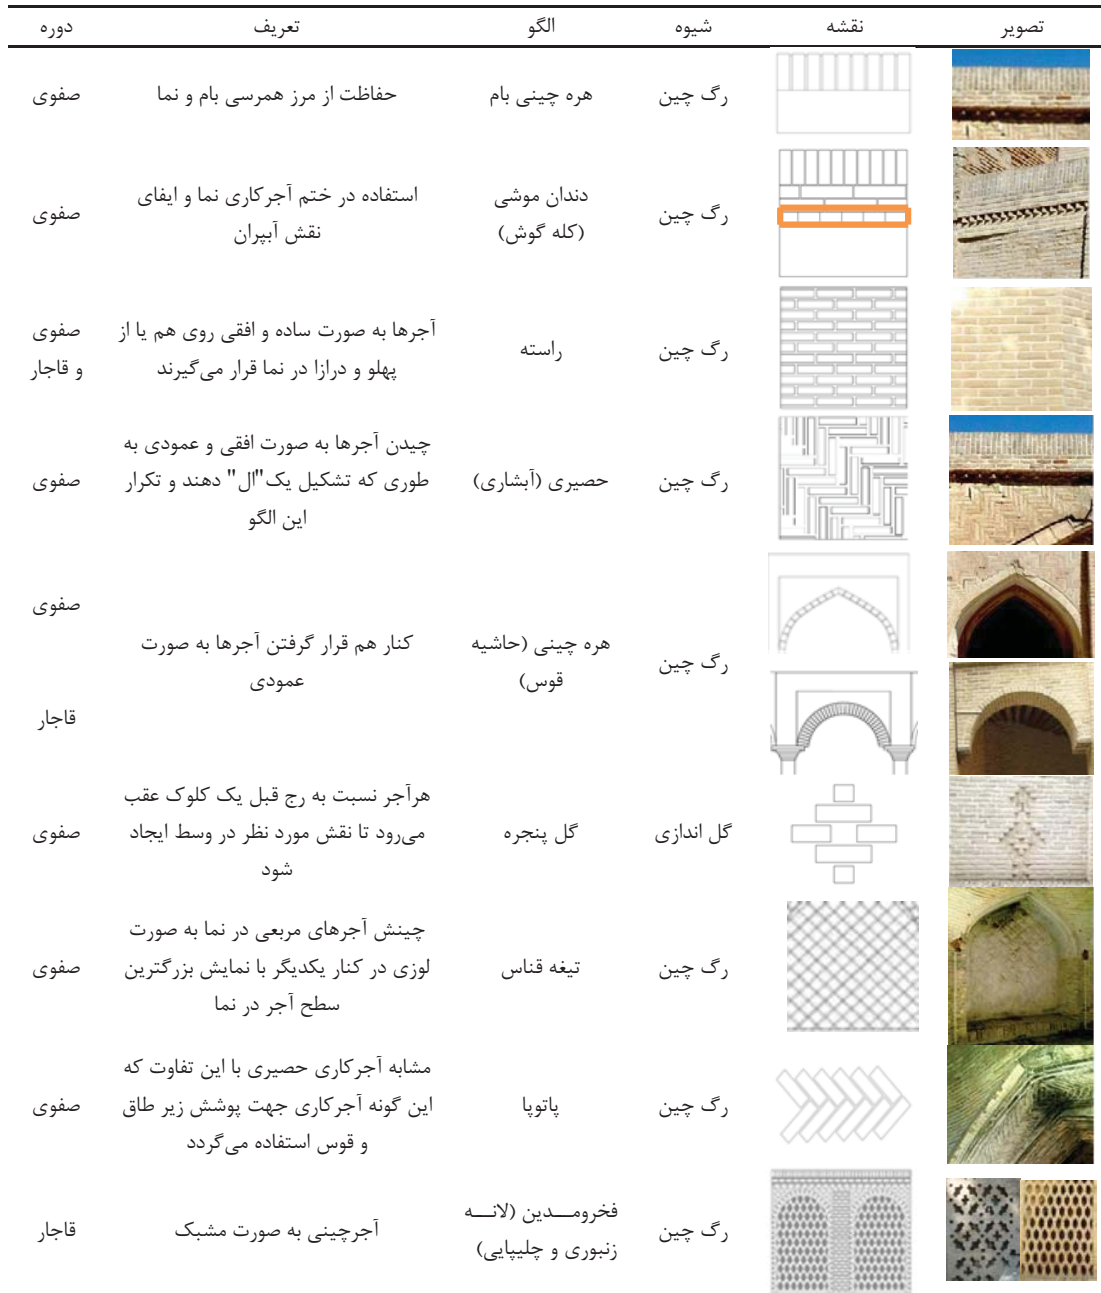 تصویر نقشه شیوه الگو تعریف دوره
رگ چین هره چینی بام حفاظت از مرز همرسی بام و نما صفوی
رگ چین
دندان موشی
(کله گوش)
استفاده در ختم آجرکاری نما و ایفای
نقش آبپران
صفوی
رگ چین
راسته
آجرها به صورت ساده و افقی روی هم یا از
پهلو و درازا در نما قرار می‌گیرند
صفوی
و قاجار
رگ چین
حصیری (آبشاری)
چیدن آجرها به صورت افقی و عمودی به
طوری که تشکیل یک"ال" دهند و تکرار
این الگو
صفوی
رگ چین
هره چینی (حاشیه
قوس)
کنار هم قرار گرفتن آجرها به صورت
عمودی
صفوی
قاجار
گل اندازی
گل پنجره
هرآجر نسبت به رج قبل یک کلوک عقب
می‌رود تا نقش مورد نظر در وسط ایجاد
شود
صفوی
رگ چین
تیغه قناس
چینش آجرهای مربعی در نما به صورت
لوزی در کنار یکدیگر با نمایش بزرگترین
سطح آجر در نما
صفوی
رگ چین
پاتوپا
مشابه آجرکاری حصیری با این تفاوت که
این گونه آجرکاری جهت پوشش زیر طاق
و قوس استفاده می‌گردد
صفوی
رگ چین
فخرومـــدین (لانـــه
زنبوری و چلیپایی)
آجرچینی به صورت مشبک
قاجار